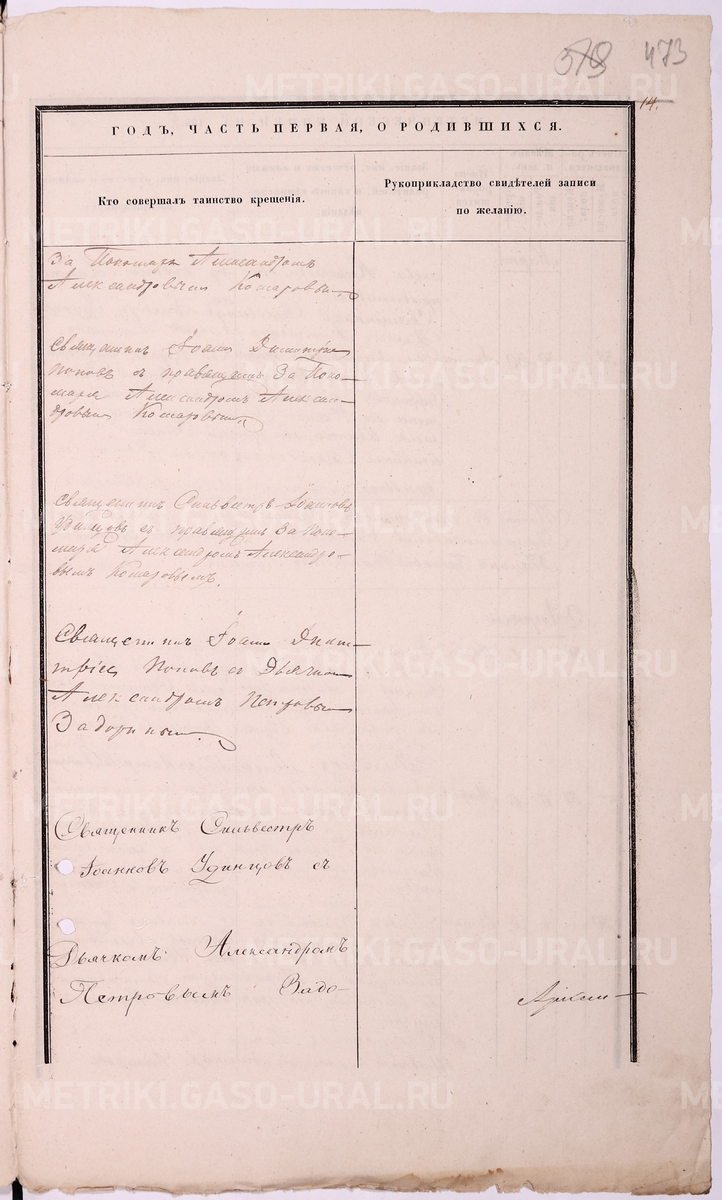 473
14.
ГОДЪ, ЧАСТЬ ПЕРВАЯ, О РОДИВШИХСЯ.
Кто совершалъ таинство крещенія.
Рукоприкладство свидѣтелей записи
по желанію.
За Пономаря Александромъ
Александровымъ Комаровым.
Священникъ Іоаннъ Димитріев
Поповъ съ правящимъ За Поно-
маря Александромъ Алексан-
дровым Комаровым.
Священникъ Сильвестръ Іоанновъ
Удинцовъ съ правящим За Поно-
маря Александромъ Александро-
вымъ Комаровымъ.
Священникъ Іоаннъ Дими-
тріев Поповъ съ Дьячком
Александромъ Петровым
Задориным.
Священникъ Сильвестръ
Іоанновъ Удинцовъ съ
Дьячкомъ Александромъ
Петровымъ Задо-
METRIKI.GASO-URAL.RU